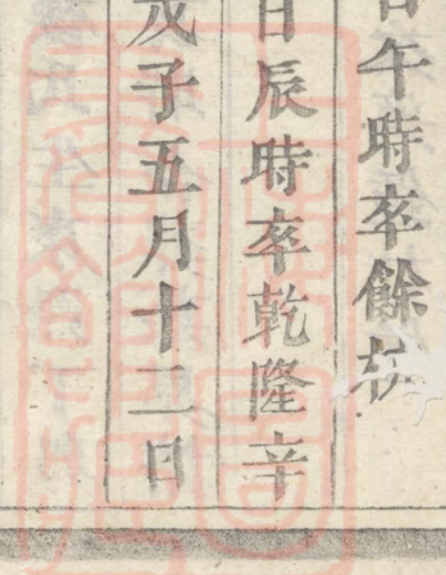 日午時卒餘杭
日辰時卒乾隆辛
戊子五月十二日